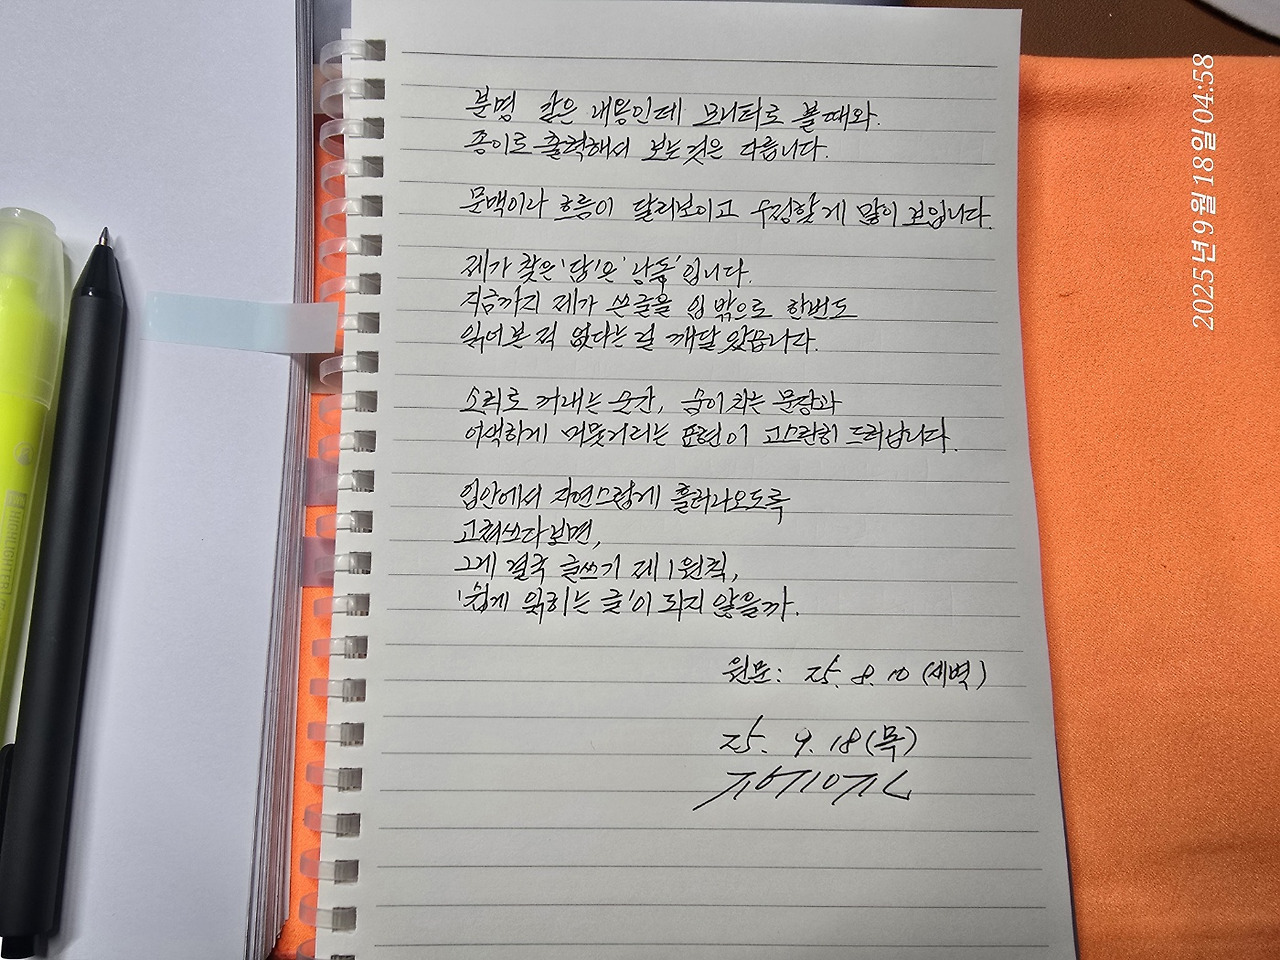 분명 같은 내용인데 모니터로 볼때와
종이로 출력해서 보는것은 다릅니다.
문맥이나 흐름이 달리보이고 수정할게 많이 보입니다.
제가 찾은 '답'은 '낭독'입니다.
지금까지 제가 쓴글을 입 밖으로 한번도
읽어본 적 없다는 걸 깨달았습니다.
소리로 꺼내는 순간, 숨이차는 문장과
어색하게 머뭇거리는 표현이 고스란히 드러납니다.
입안에서 자연스럽게 흘러나오도록
고쳐쓰다보면,
그게 결국 글쓰기 제1원칙,
'쉽게 읽히는 글'이 되지 않을까.
원문: 25. 8. 10 (새벽)
25. 9. 18 (목)
2025년 9월 18일 04:58
HIGHLIGHTER